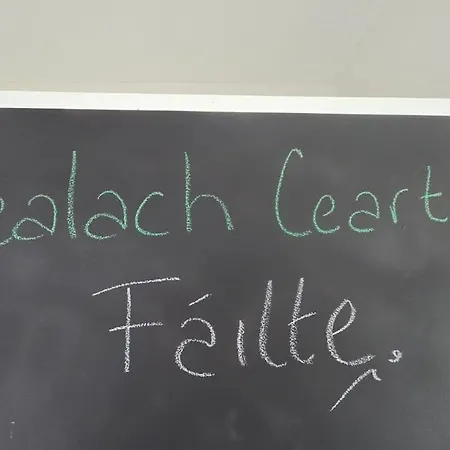 ealach Ceart
Fáilte.